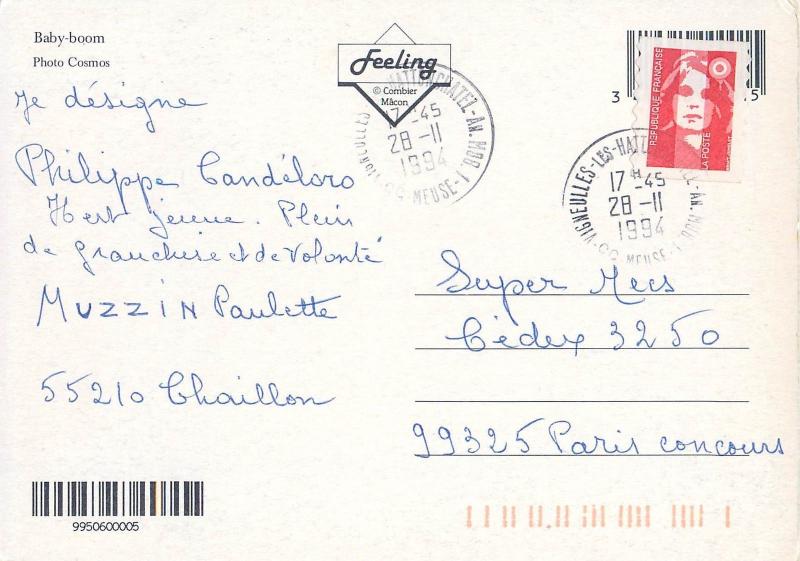 Baby-boom
Photo Cosmos
Feeling
© Combier
Mâcon
Je désigne
Philippe Candéloro
Il est jeune. Plein
de franchise et de volonté
MUZZIN Paulette
55210 Chaillon
9950600005
HATTONCHATEL-AN. MOB 1
17 45
28-11
1994
MEUSE
3
5
REPUBLIQUE FRANÇAISE
LA POSTE
VIGNEULLES-LES-HATT
AN. MOB
17H45
28-11
1994
MEUSE
Super Mecs
Cédex 3250
99325 Paris concours